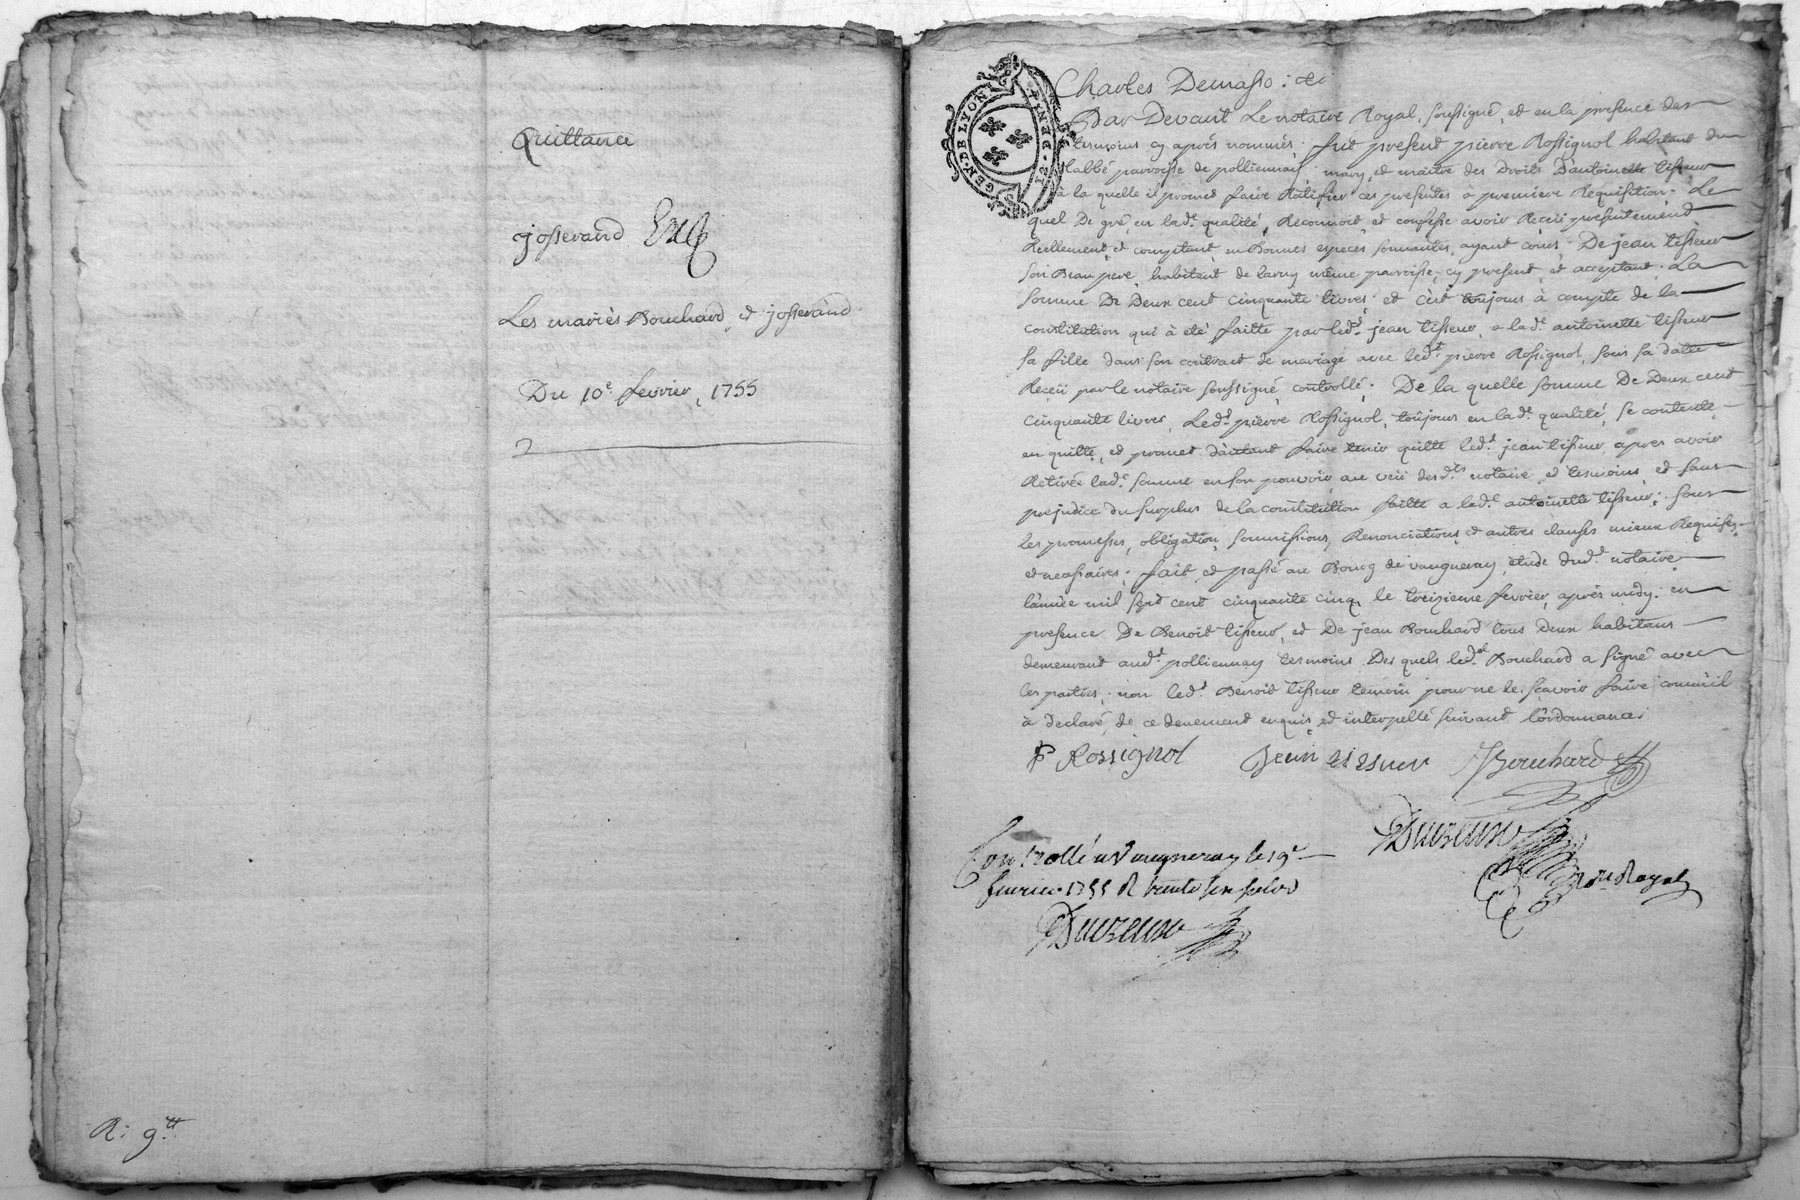 Quittance
josserand
Les mariés Bouchard, et josserand
Du 10e. fevrier, 1755
2
R: 9.tt
GEN. DE LYON
Charles Demasso: &c
Par Devant Le notaire Royal, soussigné, et en la presence des
tesmoins cy aprés nommés: fut present pierre Rossignol habitant du
Labbé parroisse de polliennay, mary, et maitre des Droits D'antoinette tisseur
à la quelle il promet faire Ratifier ces presentes à premiere Requisition. Le
quel De gré, en lade. qualité, Reconnoit, et confesse avoir Receü presentement
Reellement, et comptant, en Bonnes especes sonnantes, ayant cours. De jean tisseur
son Beau pere, habitant de même parroisse, cy present, et acceptant. La
somme De Deux cent cinquante livres, et c'est toujours à compte de la
constitution qui à eté faitte par led.t jean tisseur, a lad.e antoinette tisseur
sa fille dans son contract de mariage avec led.t pierre Rossignol, sous sa datte
Receü par le notaire soussigné, controllé; De la quelle somme De Deux cent
cinquante livres, Led.t pierre Rossignol, toûjours en lad.e qualité, se contente
en quitte, et promet d'autant faire tenir quitte led.t jean tisseur, apres avoir
Retirée lad.e somme en son pouvoir, au veü desd.ts notaire, et tesmoins, et sans
prejudice du surplus de la constitution faitte a lad.e antoinette tisseur; sous
les promesses, obligation, soumissions, Renonciations, et autres clauses mieux Requises,
et necessaires; fait et passé au Bourg de vaugneray, étude dud.t notaire
l'année mil sept cent cinquante cinq, le treizieme fevrier, aprés midy: en
presence De Benoit tisseur, et De jean Bouchard tous Deux habitans
demeurant aud.t polliennay tesmoins Des quels led.t Bouchard a signé avec
les parties, non led.t Benoit tisseur temoin pour ne le sçavoir faire comm'il
à declaré, de ce deuement enquis, et interpellé suivant l'ordonnance.
P Rossignol Jean tisseur JBouchard
Controllé a Vaugneray le 19e
fevrier 1755 R trente six sols
Not. Royal